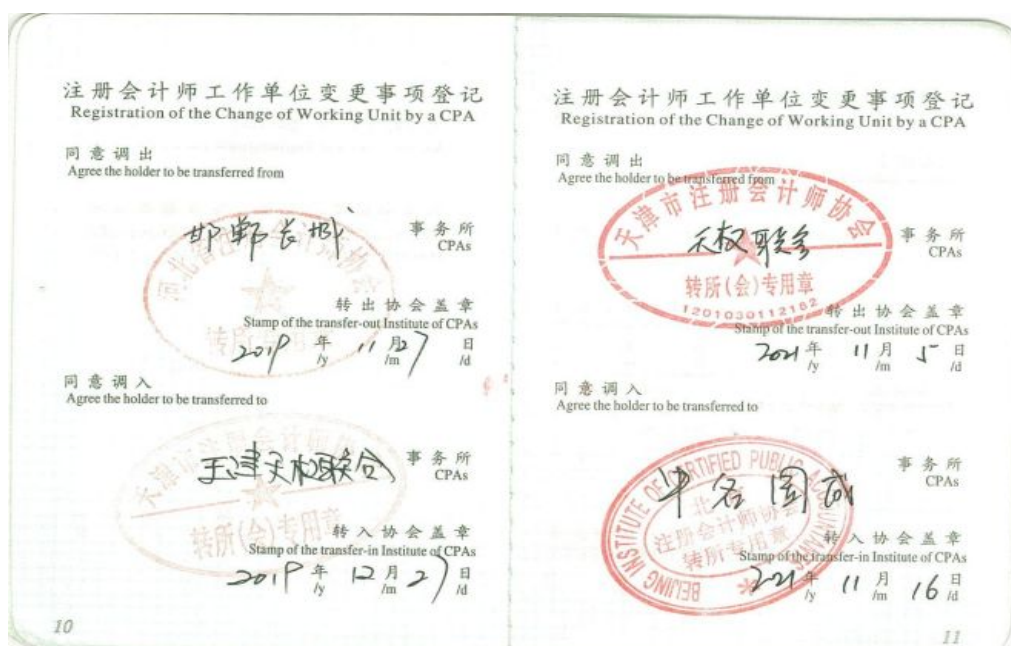 注册会计师工作单位变更事项登记
Registration of the Change of Working Unit by a CPA
同意调出
Agree the holder to be transferred from
邯郸长城
事务所
CPAs
河北省注册会计师协会
转所专用章
转出协会盖章
Stamp of the transfer-out Institute of CPAs
2019 年 11 月 27 日
/y /m /d
同意调入
Agree the holder to be transferred to
天津天权联合
事务所
CPAs
天津市注册会计师协会
转所(会)专用章
转入协会盖章
Stamp of the transfer-in Institute of CPAs
2019 年 12 月 27 日
/y /m /d
10
注册会计师工作单位变更事项登记
Registration of the Change of Working Unit by a CPA
同意调出
Agree the holder to be transferred from
天津市注册会计师协会
天权联合
事务所
CPAs
转所(会)专用章
1201030112182
转出协会盖章
Stamp of the transfer-out Institute of CPAs
2021 年 11 月 5 日
/y /m /d
同意调入
Agree the holder to be transferred to
事务所
CPAs
BEIJING INSTITUTE OF CERTIFIED PUBLIC ACCOUNTANTS
北京
注册会计师协会
转所专用章
转入协会盖章
Stamp of the transfer-in Institute of CPAs
2021 年 11 月 16 日
/y /m /d
11